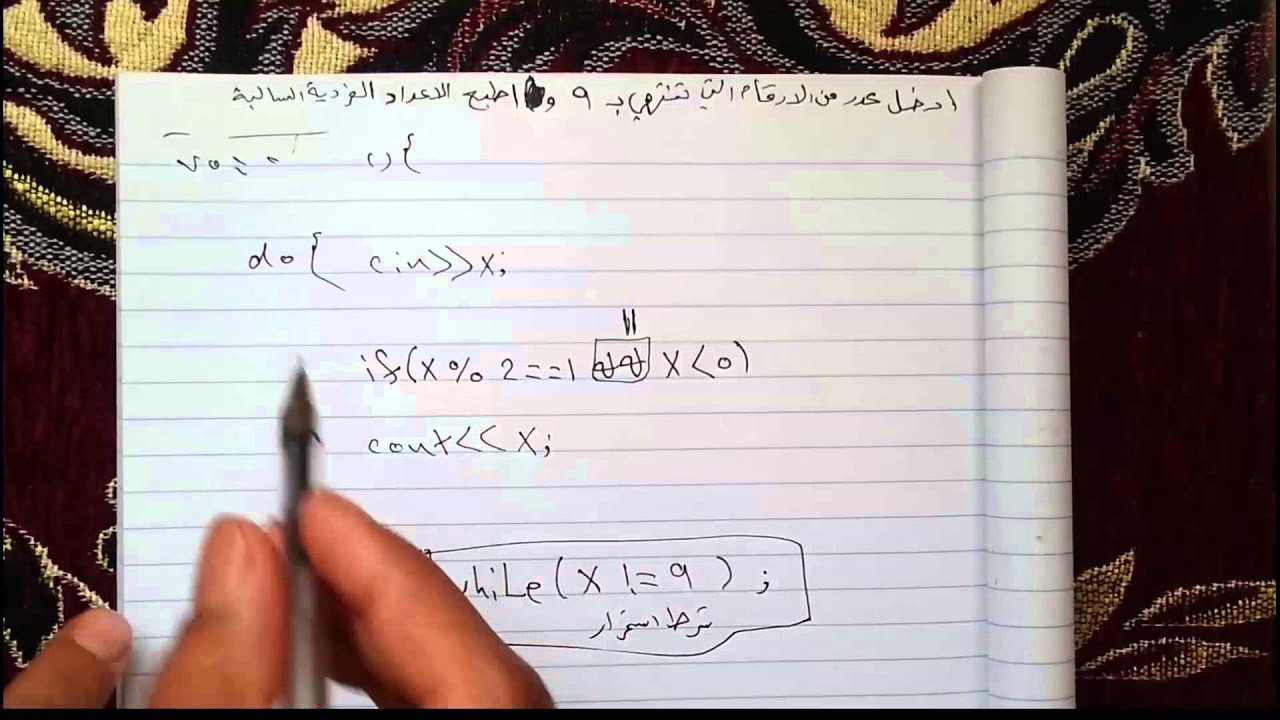 ادخل عدد من الارقام التي تنتهي بـ 9 و اطبع الاعداد الفردية السالبة
(){
do{ cin>>x;
||
if(x % 2==1 && x<0)
cout<<x;
while(x != 9) ;
شرط استمرار